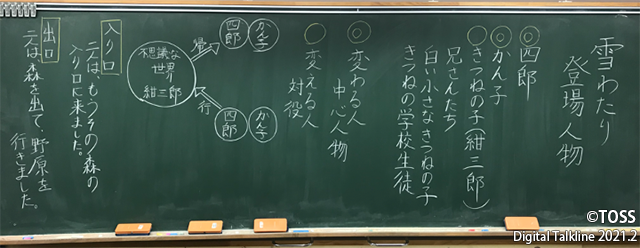 雪わたり
登場人物
◎四郎
◎かん子
○きつねの子（紺三郎）
兄さんたち
白い小さなきつねの子
きつねの学校生徒
◎変わる人
中心人物
○変える人
対役
四郎
かん子
帰
不思議な
世界
紺三郎
行
四郎
かん子
入り口
二人はもうその森の
入り口に来ました。
出口
二人は森を出て、野原を
行きました。
©TOSS
Digital Talkline 2021.2